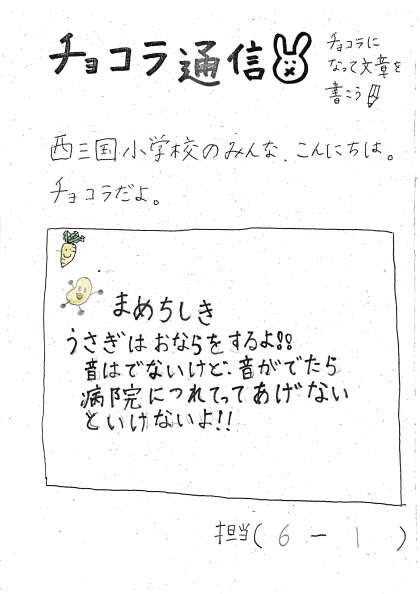 チョコラ通信
チョコラに
なって文章を
書こう
西三国小学校のみんな、こんにちは。
チョコラだよ。
まめちしき
うさぎはおならをするよ!!
音はでないけど、音がでたら
病院につれてってあげない
といけないよ!!
担当(6-1)